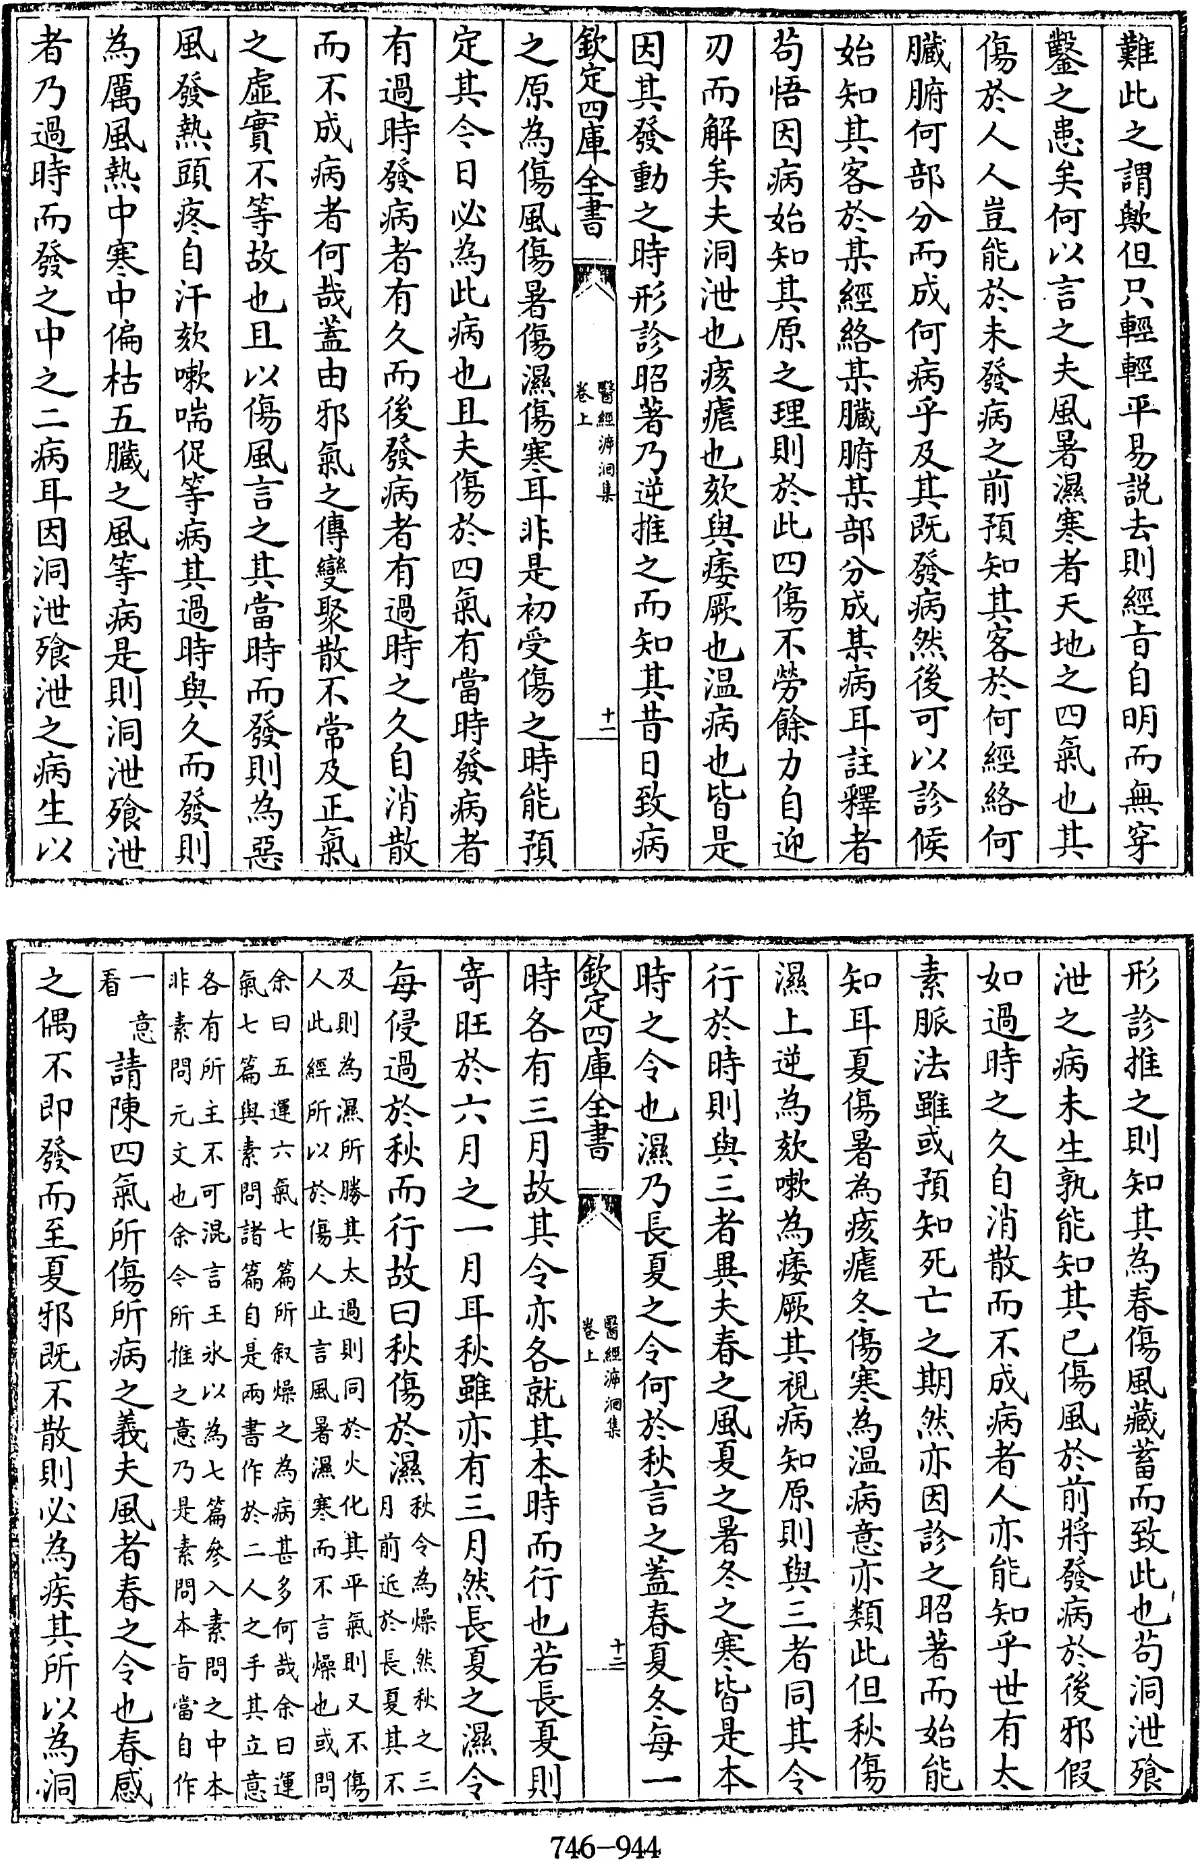 難此之謂歟但只輕輕平易説去則經旨自明而無穿
鑿之患矣何以言之夫風暑濕寒者天地之四氣也其
傷於人人豈能於未發病之前預知其客於何經絡何
臟腑何部分而成何病乎及其既發病然後可以診候
始知其客於某經絡某臟腑某部分成某病耳註釋者
苟悟因病始知其原之理則於此四傷不勞餘力自迎
刃而解矣夫洞泄也痎瘧也欬與痿厥也温病也皆是
因其發動之時形診昭著乃逆推之而知其昔日致病
欽定四庫全書
醫經溯洄集
卷上
十二
之原為傷風傷暑傷濕傷寒耳非是初受傷之時能預
定其今日必為此病也且夫傷於四氣有當時發病者
有過時發病者有久而後發病者有過時之久自消散
而不成病者何哉蓋由邪氣之傳變聚散不常及正氣
之虛實不等故也且以傷風言之其當時而發則為惡
風發熱頭疼自汗欬嗽喘促等病其過時與久而發則
為厲風熱中寒中偏枯五臟之風等病是則洞泄飱泄
者乃過時而發之中之二病耳因洞泄飱泄之病生以
形診推之則知其為春傷風藏蓄而致此也苟洞泄飱
泄之病未生孰能知其已傷風於前將發病於後邪假
如過時之久自消散而不成病者人亦能知乎世有太
素脈法雖或預知死亡之期然亦因診之昭著而始能
知耳夏傷暑為痎瘧冬傷寒為温病意亦類此但秋傷
濕上逆為欬嗽為痿厥其視病知原則與三者同其令
行於時則與三者異夫春之風夏之暑冬之寒皆是本
時之令也濕乃長夏之令何於秋言之蓋春夏冬每一
欽定四庫全書
醫經溯洄集
卷上
十二
時各有三月故其令亦各就其本時而行也若長夏則
寄旺於六月之一月耳秋雖亦有三月然長夏之濕令
每侵過於秋而行故曰秋傷於濕
秋令為燥然秋之三
月前近於長夏其不
及則為濕所勝其太過則同於火化其平氣則又不傷
人此經所以於傷人止言風暑濕寒而不言燥也或問
余曰五運六氣七篇所叙燥之為病甚多何哉余曰運
氣七篇與素問諸篇自是兩書作於二人之手其立意
各有所主不可混言王冰以為七篇參入素問之中本
非素問元文也余今所推之意乃是素問本旨當自作
一意
看
請陳四氣所傷所病之義夫風者春之令也春感
之偶不即發而至夏邪既不散則必為疾其所以為洞
746-944